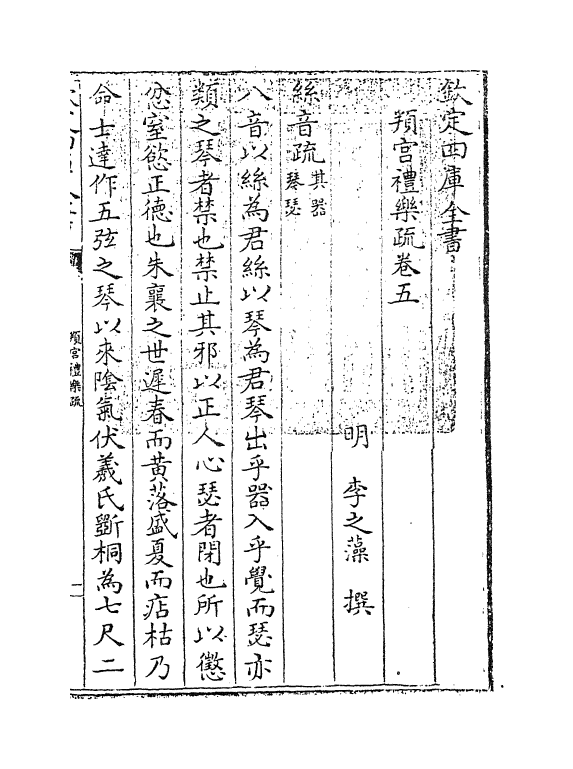 欽定四庫全書
頖宮禮樂疏卷五
明 李之藻 撰
絲音疏其器琴瑟
八音以絲為君絲以琴為君琴出乎器入乎覺而瑟亦
類之琴者禁也禁止其邪以正人心瑟者閉也所以懲
忿窒慾正德也朱襄之世遲春而黄落盛夏而痁枯乃
命士達作五弦之琴以來陰氣伏羲氏斵桐為七尺二
頖宮禮樂疏